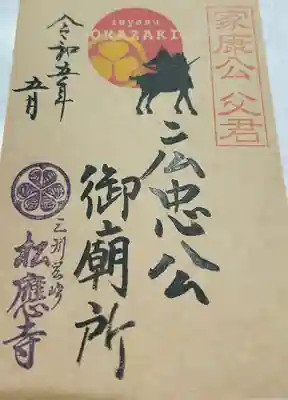 家康公 父君
ieyasu
OKAZAKI
令和五年
五月
広忠公
御廟所
三州岡崎
松應寺